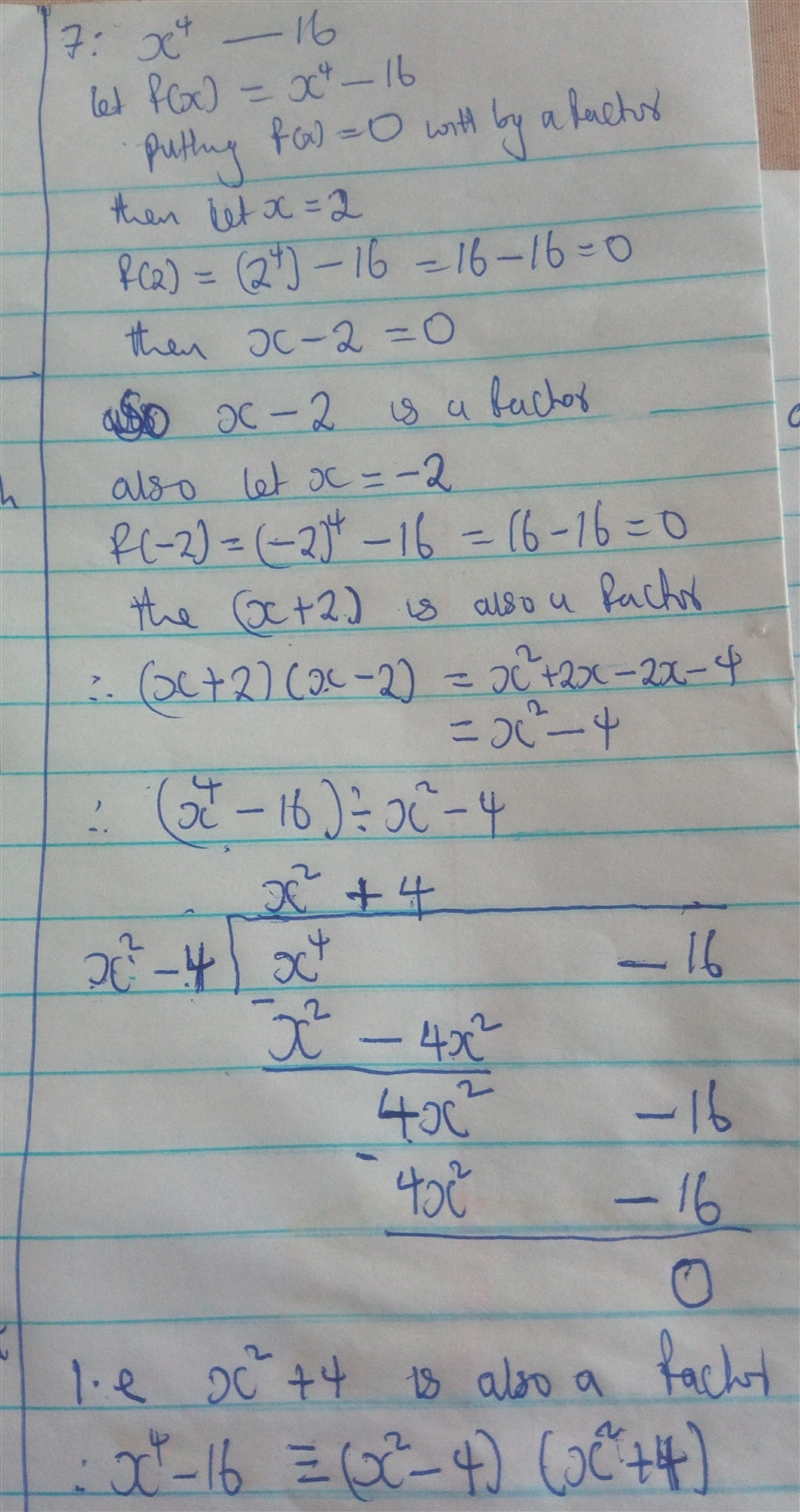 7: x⁴ — 16
let f(x) = x⁴ - 16
putting f(x) = 0 with by a factor
then let x = 2
f(2) = (2⁴) - 16 = 16 - 16 = 0
then x - 2 = 0
x - 2 is a factor
also let x = -2
f(-2) = (-2)⁴ - 16 = 16 - 16 = 0
the (x+2) is also a factor
∴ (x+2)(x-2) = x²+2x-2x-4
= x² - 4
∴ (x⁴ - 16) ÷ x² - 4
x² + 4
x² - 4 √ x⁴ - 16
- x² - 4x²
4x² - 16
- 4x² - 16
0
1.e x² + 4 is also a factor
∴ x⁴ - 16 ≡ (x² - 4) (x² + 4)